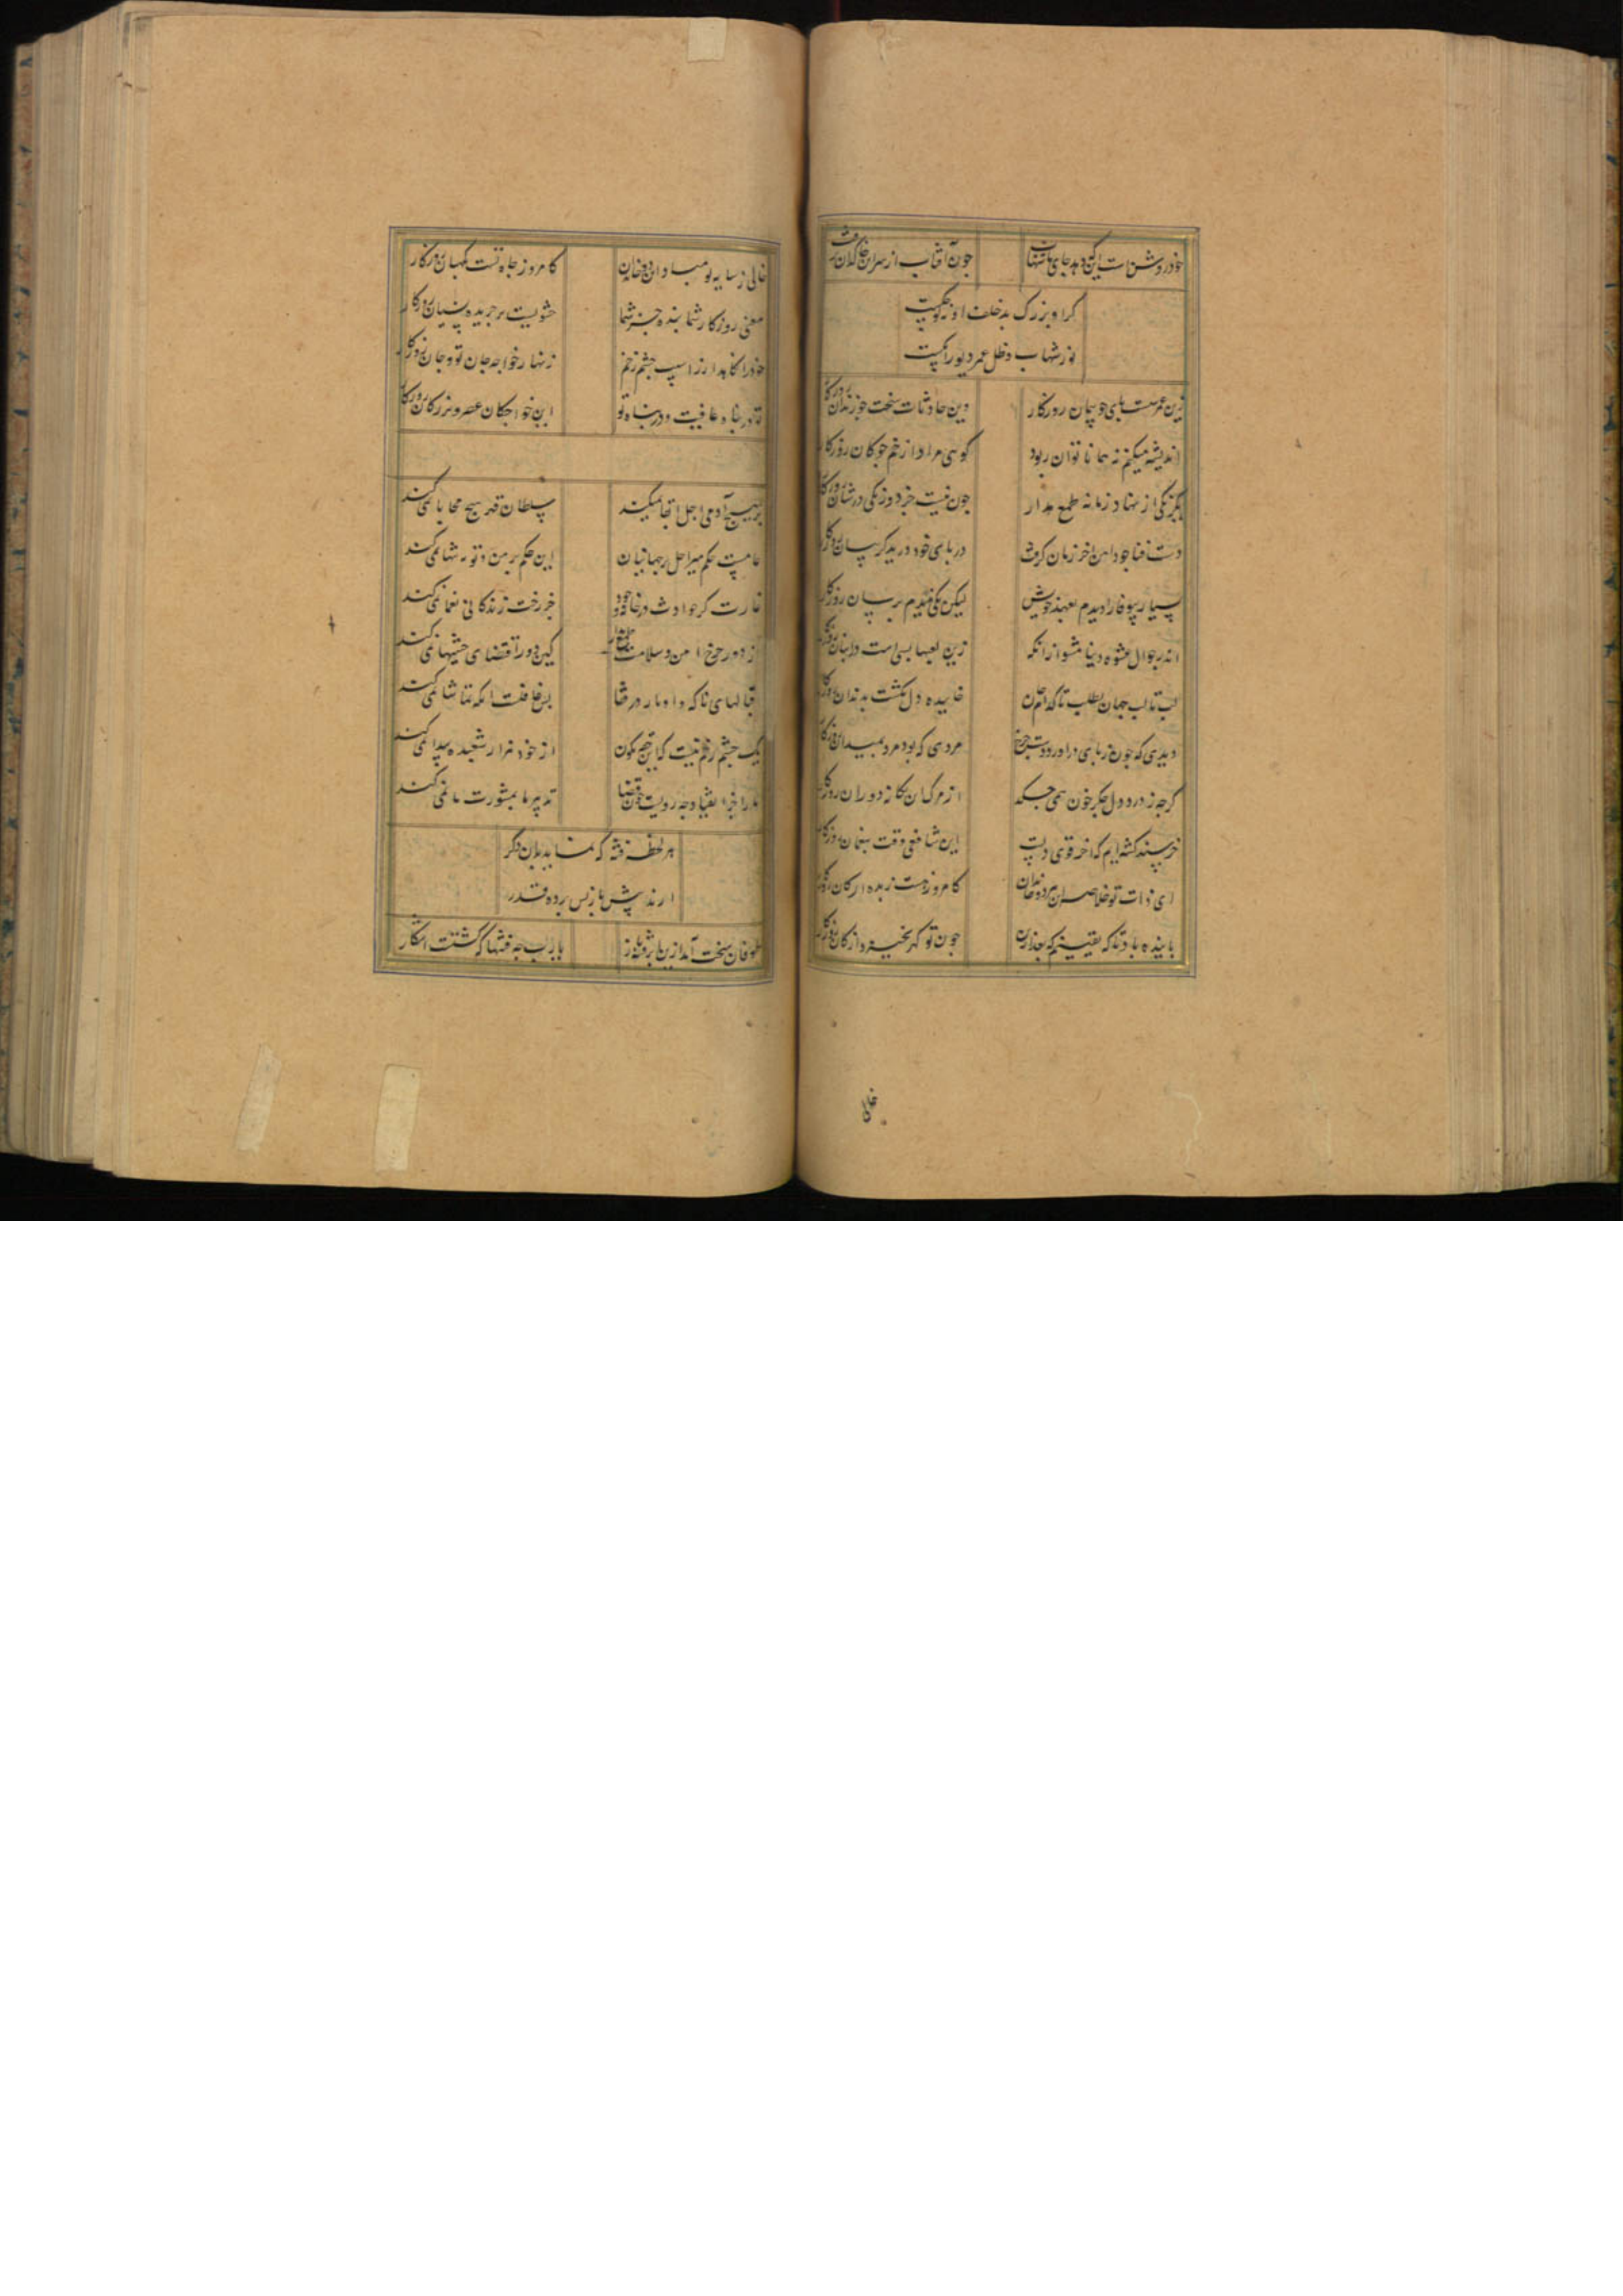 خود روشنست این که دهد جای
چون آفتاب از سران
کر او بزرک بد خلف او نه کوچکیست
نور شهاب و ظل عمر دیورا کمیست
زین عمر سست پای چو پیمان روزکار
وین حادثات سخت چو زندان روزکار
اندیشه میکنم نه همانا توان ربود
کوی مراد از خم چوکان روزکار
یکرنکی از نهاد زمانه طمع مدار
چون نیست جز دورنکی در شان روزکار
دست فنا چو دامن اخر زمان کرفت
در پای خود درید کریبان روزکار
بسیار بیوفا را دیدم بعهد خویش
لیکن یکی ندیدم برسان روزکار
اندر جوال عشوه دنیا مشو ازانکه
زین لعبها بسی است در انبان روزکار
لب تا لب جهان بطلب تا کدام
خاییده دل نکشت بدندان روزکار
دیدی که چون ز پای دراورد دست چرخ
مردی که بود مرد بمیدان روزکار
کرچه ز درد دل جکر خون همی چکد
از مرک آن یکانه دوران روزکار
خرسند کشته ایم که اخر قوی دلست
این شافعی وقت بنعمان روزکار
ای ذات تو خلاصه ان مرده خاندان
کامروز هست زبده ارکان روزکار
پاینده باد تا که یقینم که بعد ازان
چون تو کهر نخیزد از کان روزکار
خالی
خالی ز سایه تو مباد این خاندان
کامروز جاه تست نکهبان روزکار
معنی روزکار شما بنده جز شما
حشویست بر جریده
خود را نکاهدار ز اسیب چشم زخم
زنهار خواجه جان تو و جان روزکار
تو در پناه عافیت و در پناه تو
این خواجکان عصر و بزرکان روزکار
بر هیچ آدمی اجل ابقا نمیکند
سلطان قهر هیچ محابا نمی کند
عامست حکم میر اجل بر جهانیان
این حکم بر من و تو به تنها نمی کند
غارت کر حوادث در خانه وجود
جز رخت زندکانی یغما نمی کند
از دور چرخ امن و سلامت طمع مدار
کین دور اقتضای چنینها نمی کند
بس غافلست آنکه تماشا نمی کند
یک چشم زخم نیست که این چرخ نیلکون
از خود هزار شعبده پیدا نمی کند
ما را جز انقیاد چه رویست چون قضا
تدبیر ما بمشورت ما نمی کند
هر لحظه فتنه که نماید بدان دکر
ارند پیش باز پس پرده قدر
طوفان سخت آمد ازین
یارب چه فتنها که کشتست اشکار